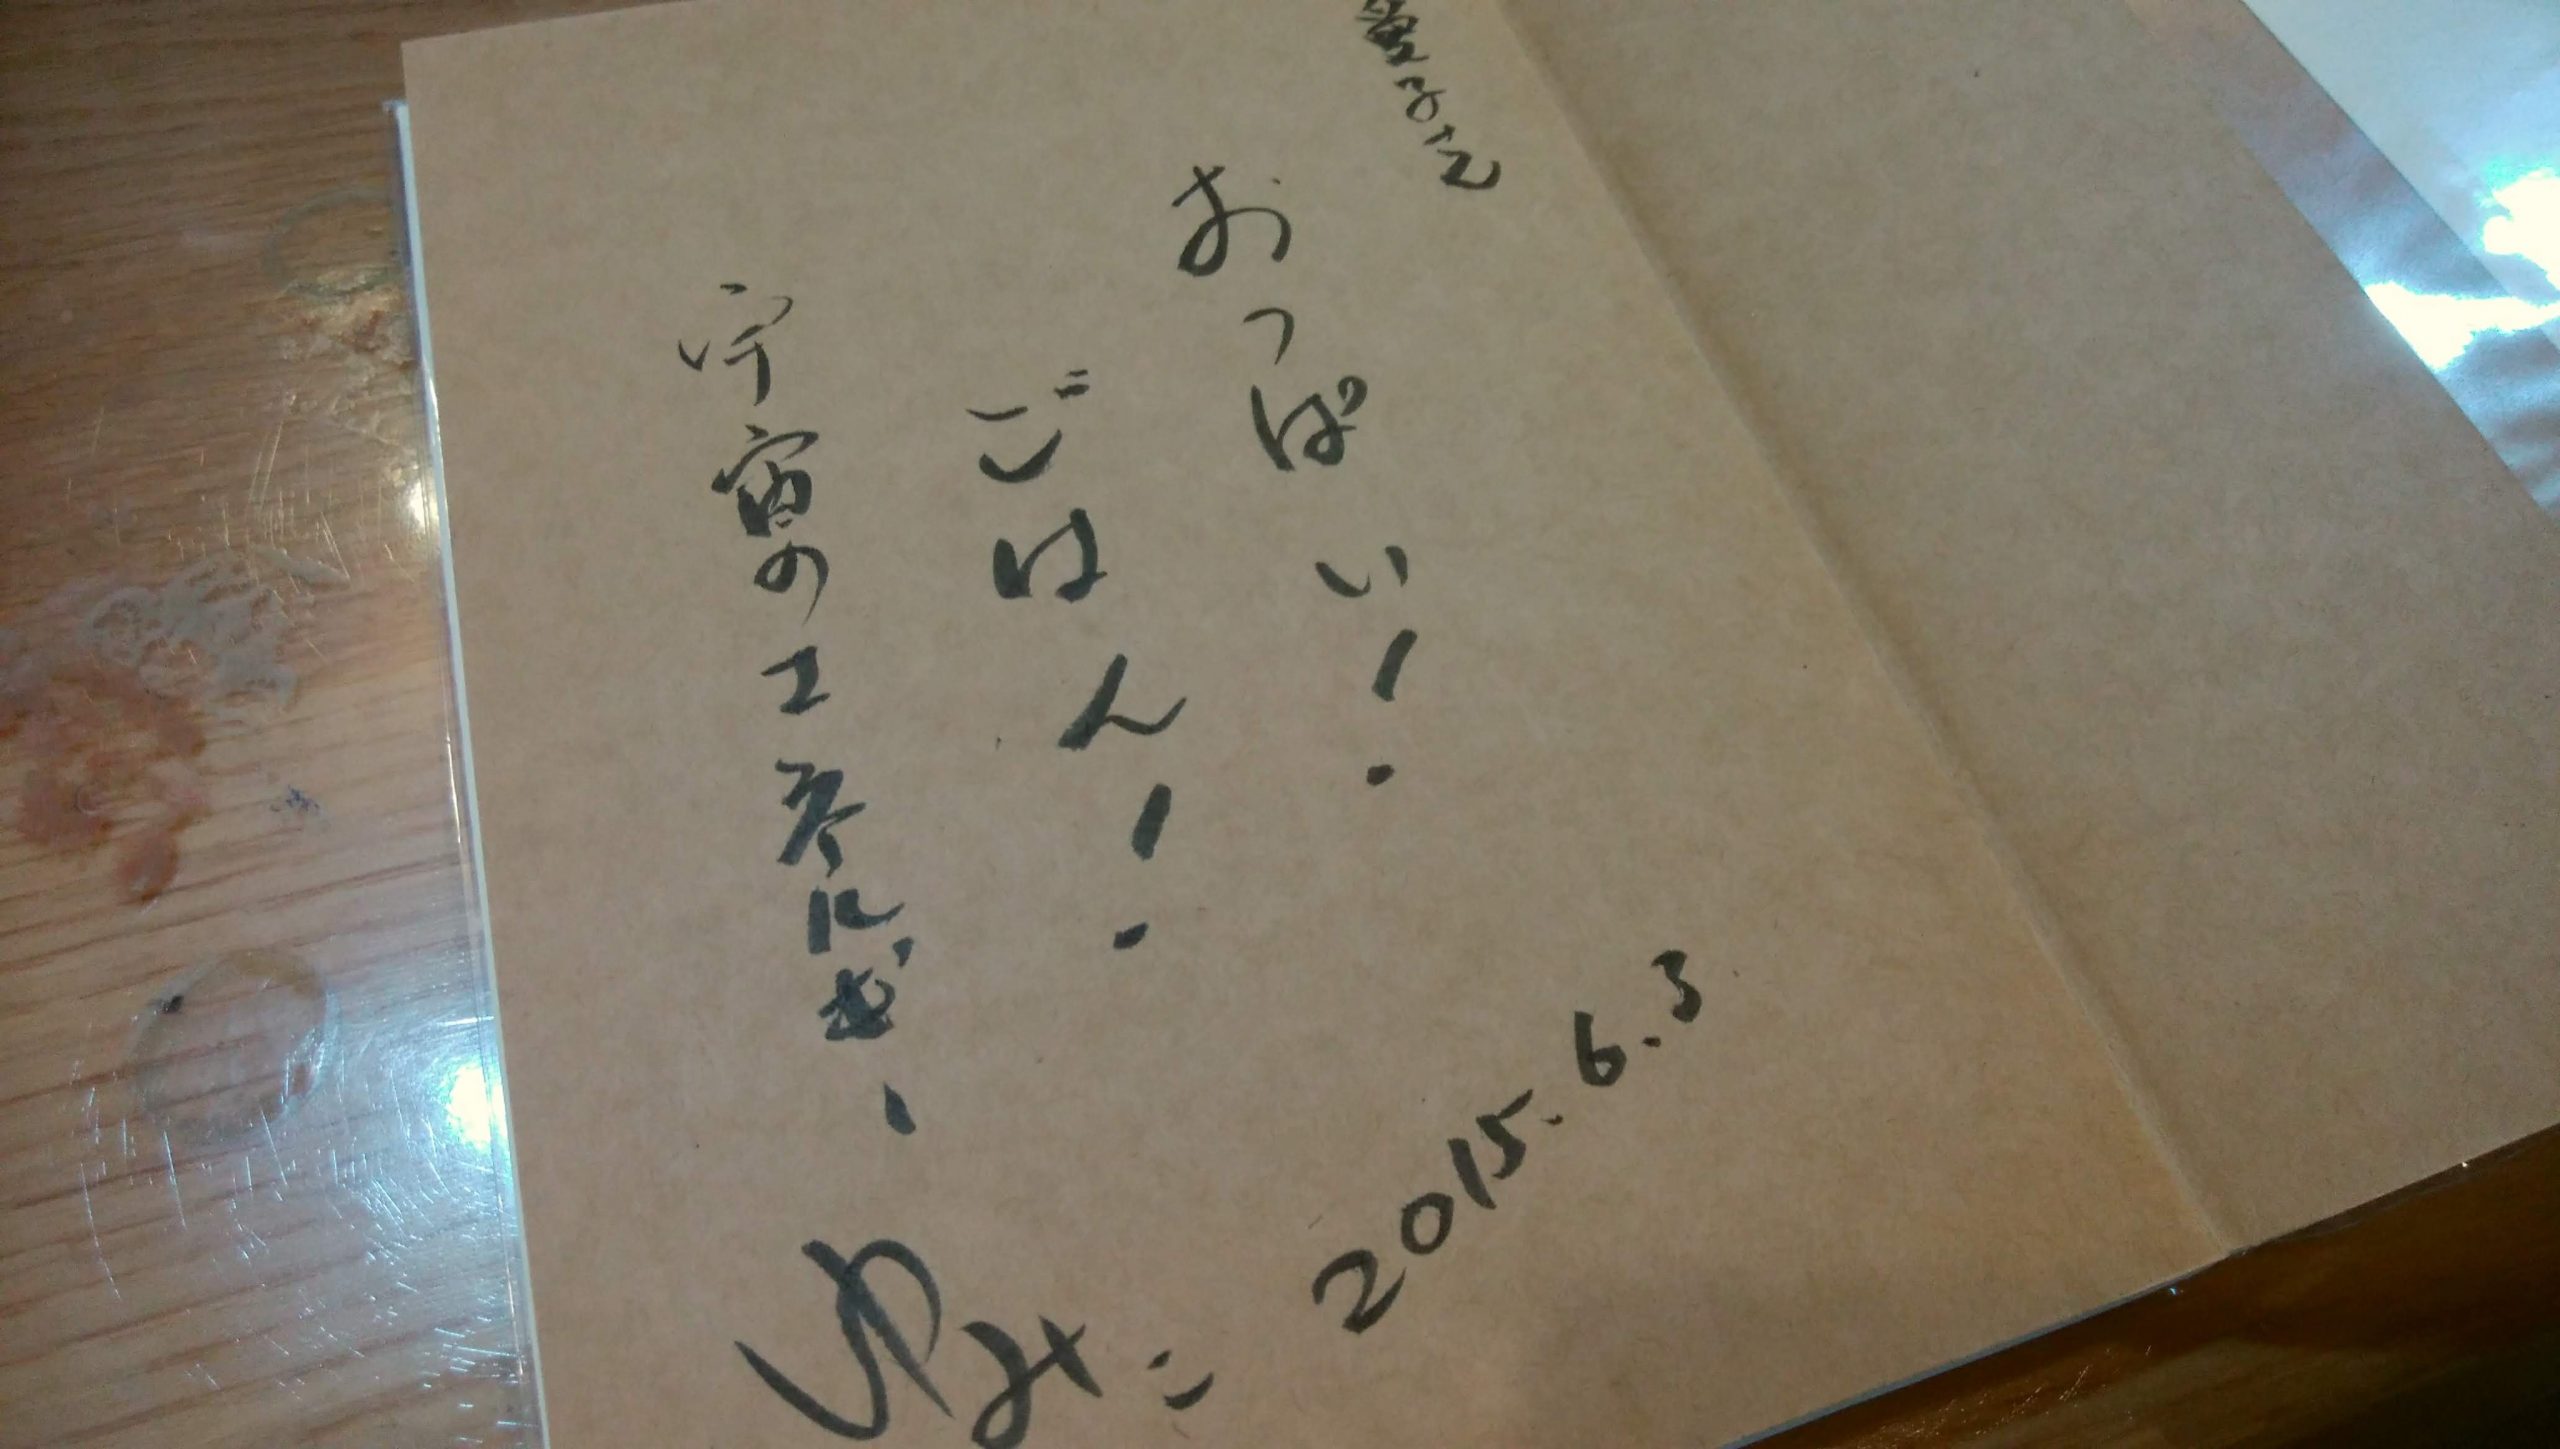 愛子さん
おっぱい！
ごはん！
宇宙のエネルギー
ゆみこ
2015.6.3